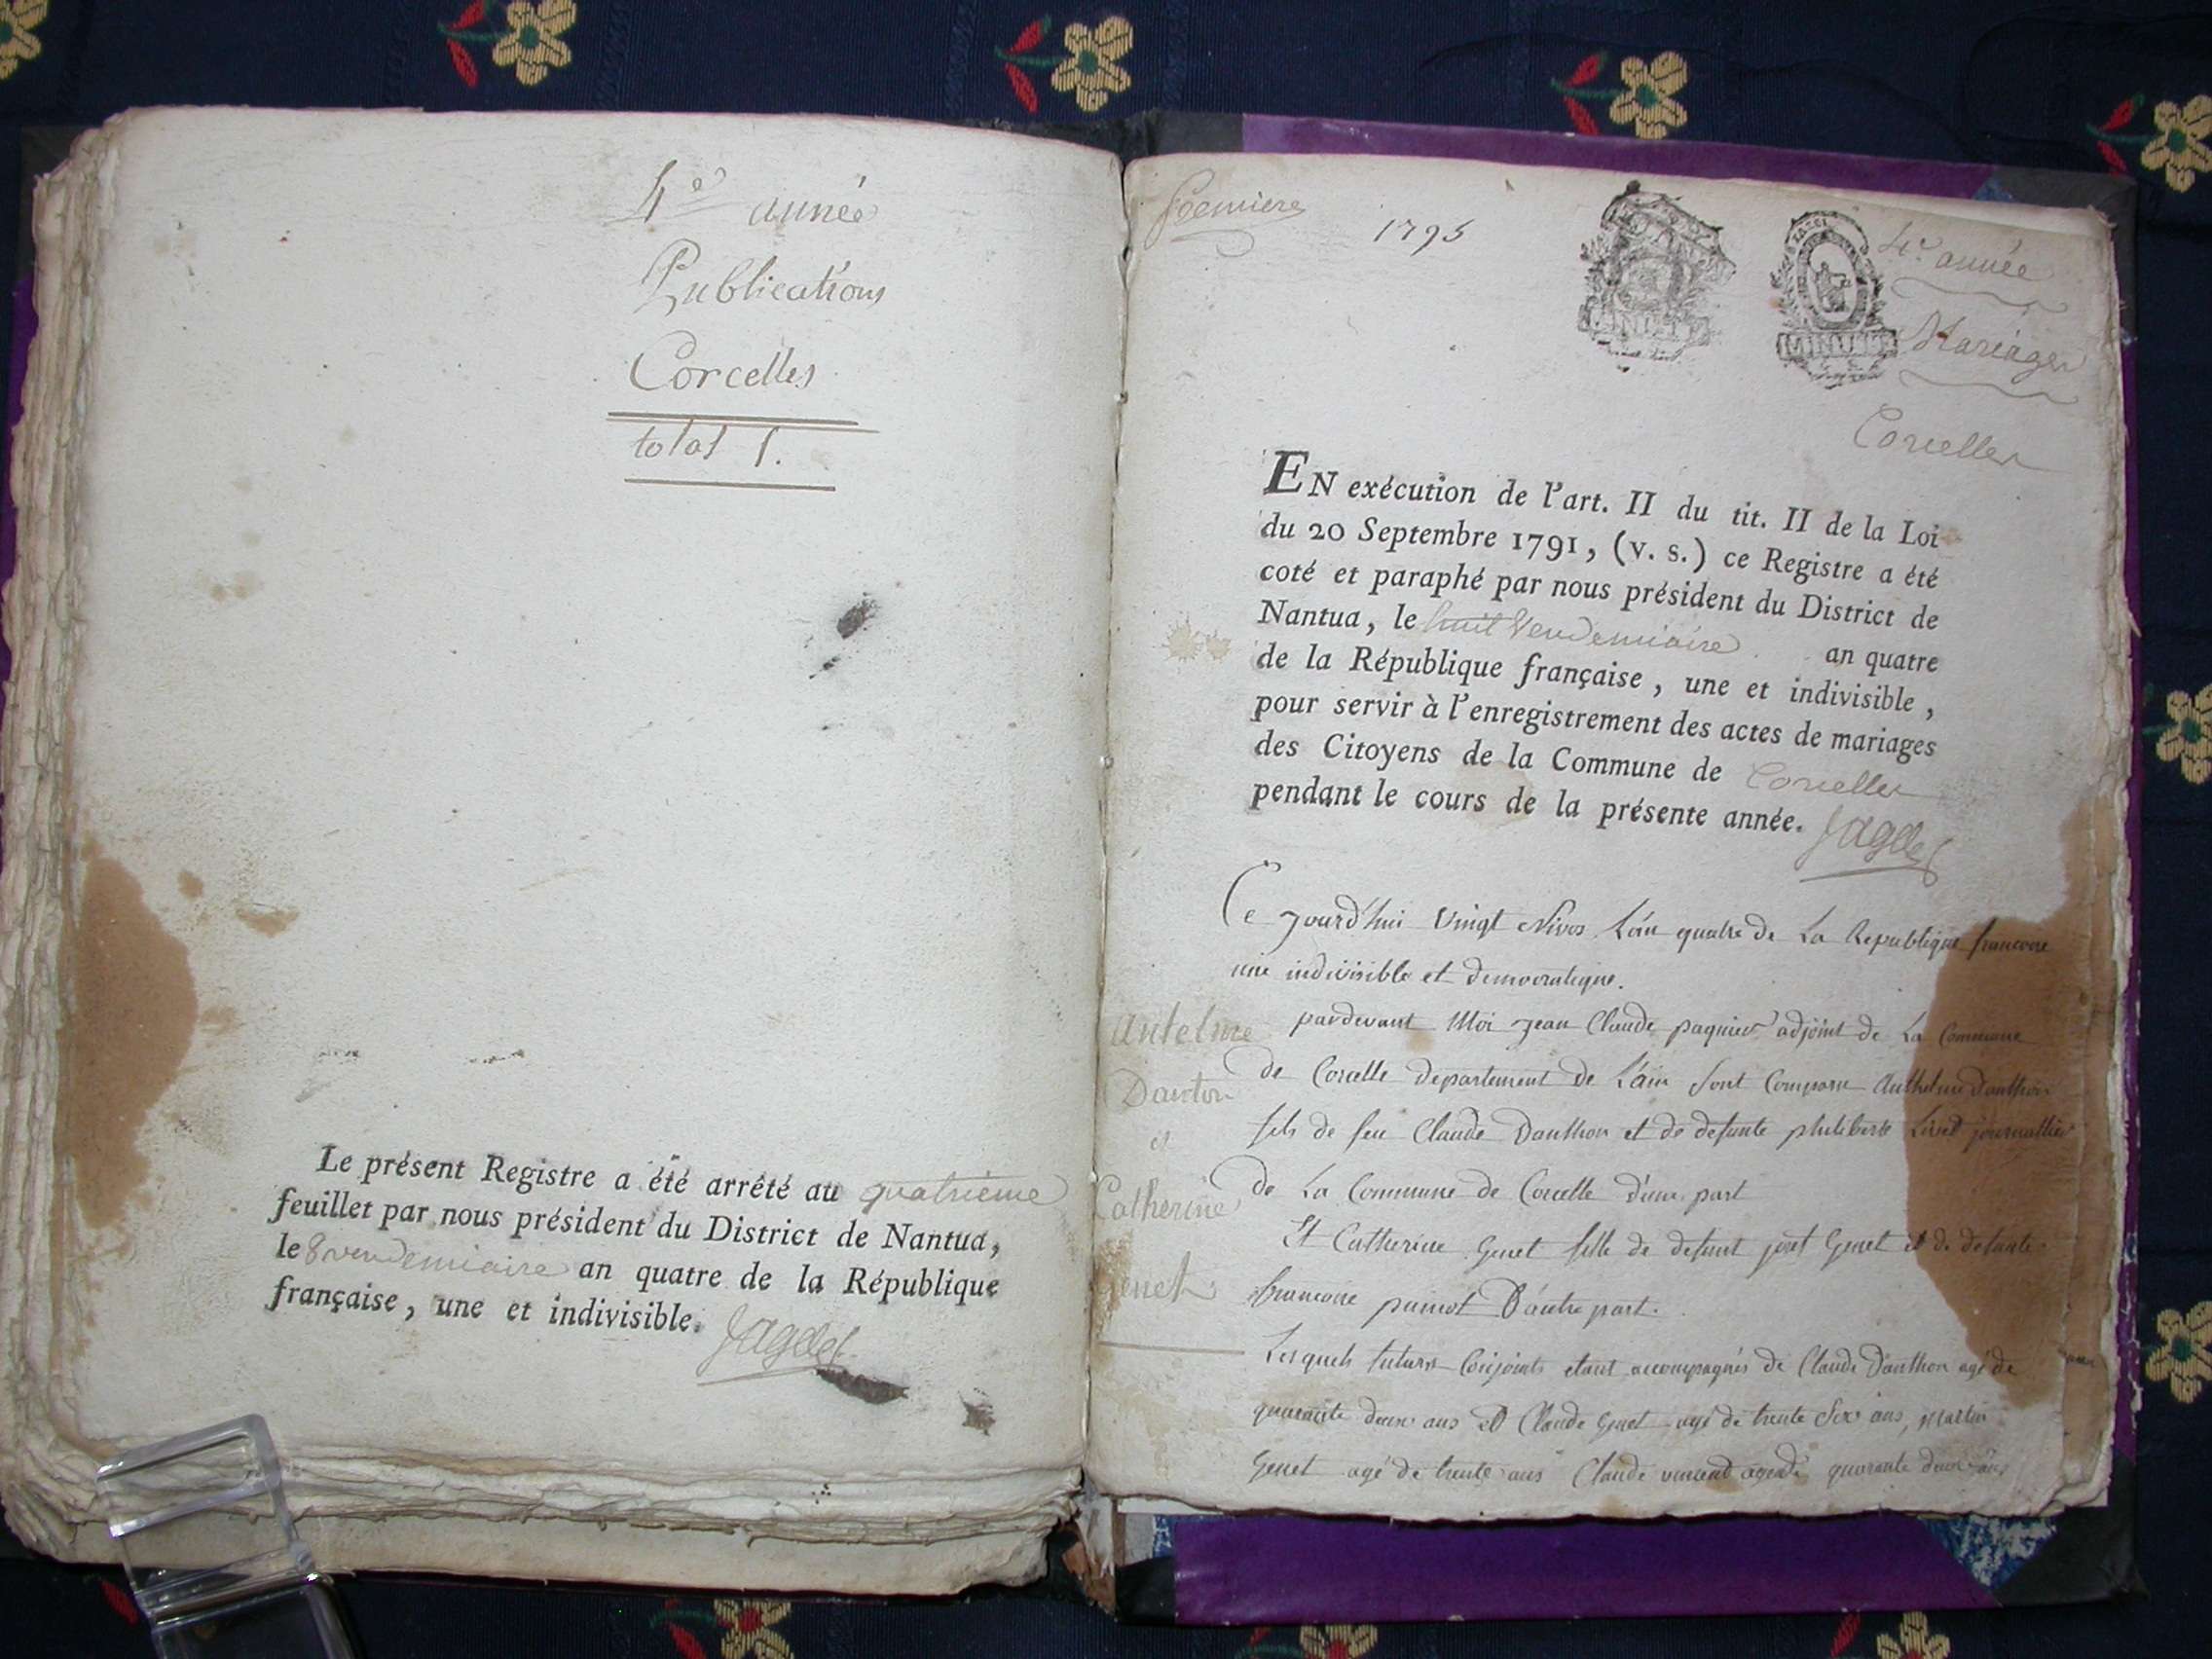 4e année
Publications
Corcelles
total 1.
Le présent Registre a été arrété au quatrieme
feuillet par nous président du District de Nantua,
le 8 vendemiaire an quatre de la République
française, une et indivisible.
Premiere
1795
MINUTE
4e année
Mariages
Corcelles
EN exécution de l'art. II du tit. II de la Loi
du 20 Septembre 1791, (v. s.) ce Registre a été
coté et paraphé par nous président du District de
Nantua, le huit Vendemiaire an quatre
de la République française, une et indivisible,
pour servir à l'enregistrement des actes de mariages
des Citoyens de la Commune de Corcelles
pendant le cours de la présente année.
Ce jourd'hui vingt Nivos L'án quatre de La Republique francoise
une indivisible et democratique.
pardevant Moi jean Claude pagnier adjoint de La Commune
de Corcelle departement de L'ain sont Comparu Anthelme Danthon
fils de feu Claude Danthon et de defunte philiberte Livet journallier
de La Commune de Corcelle d'une part
Et Catherine Genet fille de defunt josef Genet et de defunte
francoise D'autre part.
Lesquels futurs Conjoints etant accompagnés de Claude Danthon agé de
quarante deux ans et Claude Genet agé de trente six ans, Martin
Genet agé de trente ans Claude vincent agé de quarante deux ans
Antelme
Danton
et
Catherine
Genet